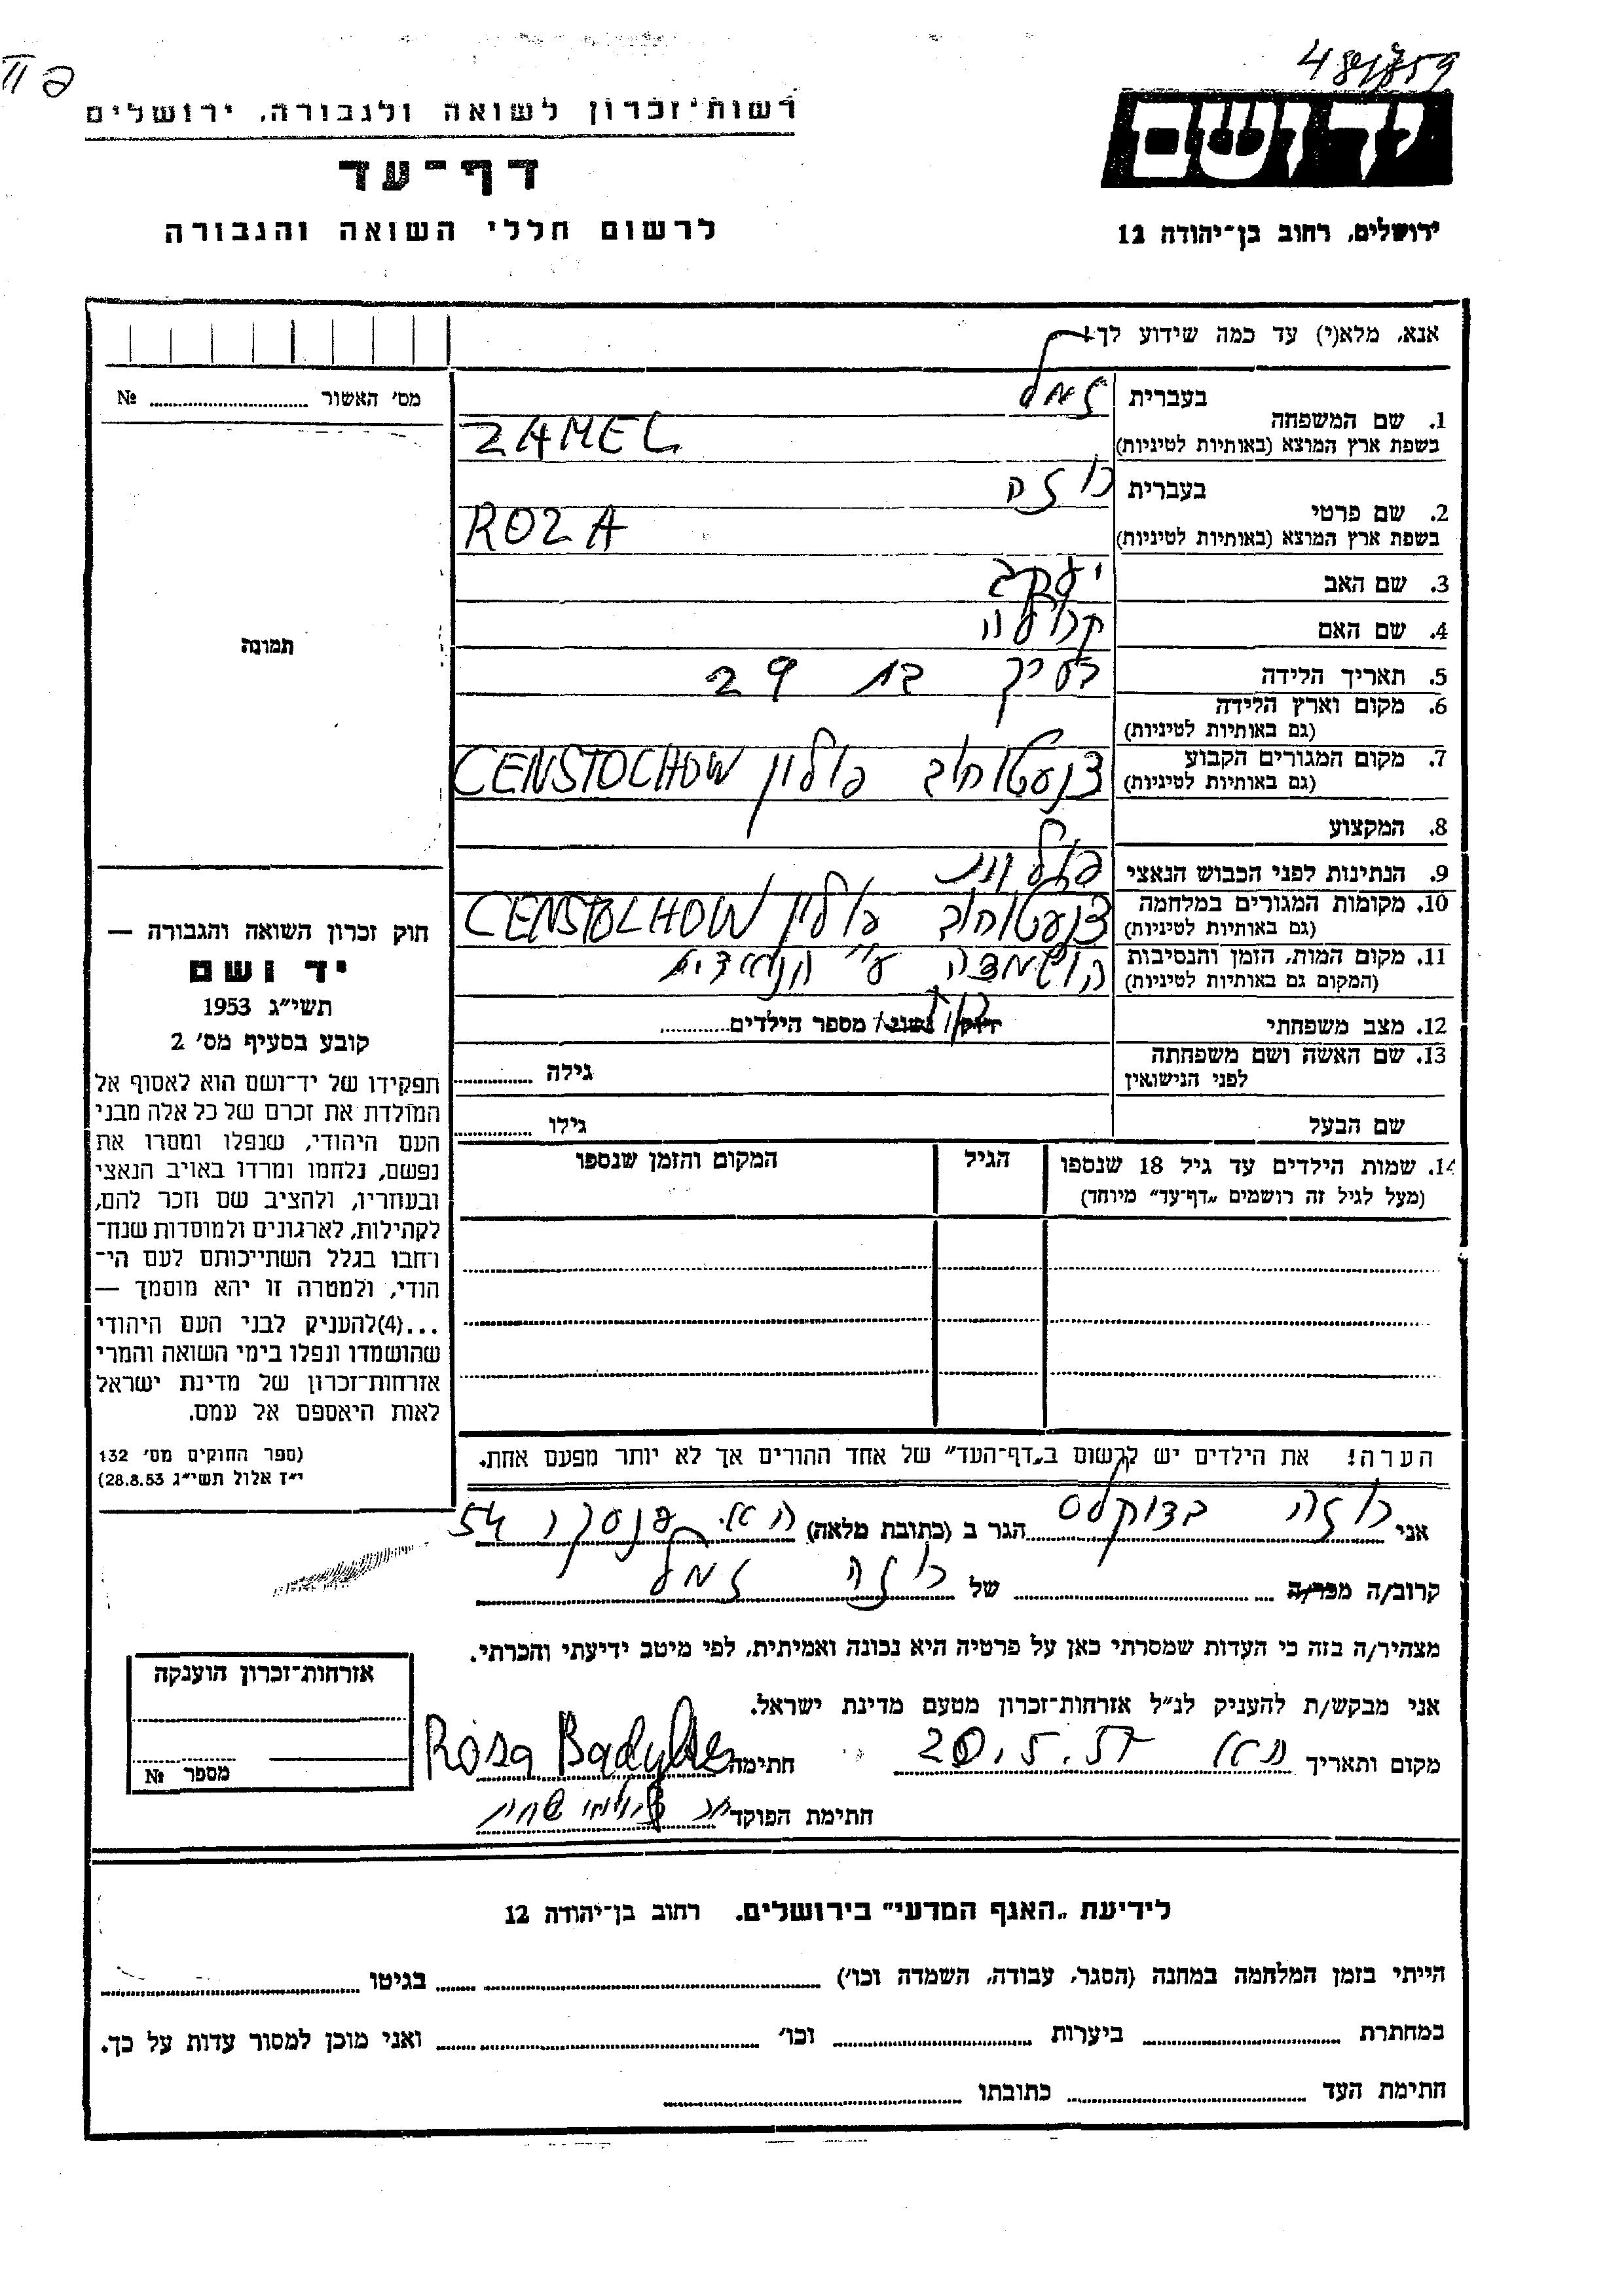 רשות־זכרון לשואה ולגבורה, ירושלים
דף־עד
לרשום חללי השואה והגבורה
ידושם
ירושלים, רחוב בן־יהודה 12
אנא, מלא(י) עד כמה שידוע לך!
מס׳ האשור № 
תמונה
1. שם המשפחה בעברית זאמל
בשפת ארץ המוצא (באותיות לטיניות) ZAMEL
2. שם פרטי בעברית רוזה
בשפת ארץ המוצא (באותיות לטיניות) ROZA
3. שם האב יעקב
4. שם האם
5. תאריך הלידה 29
6. מקום וארץ הלידה
(גם באותיות לטיניות)
7. מקום המגורים הקבוע
(גם באותיות לטיניות) פולין CENSTOCHOW
8. המקצוע
9. הנתינות לפני הכבוש הנאצי
10. מקומות המגורים במלחמה
(גם באותיות לטיניות) פולין CENSTOCHOW
11. מקום המות, הזמן והנסיבות
(המקום גם באותיות לטיניות) הושמדה ע״י הנאצים
12. מצב משפחתי רווק/ נשוי/ מספר הילדים
13. שם האשה ושם משפחתה
לפני הנישואין גילה
שם הבעל גילו
14. שמות הילדים עד גיל 18 שנספו
(מעל לגיל זה רושמים „דף־עד״ מיוחד)
הגיל
המקום והזמן שנספו
חוק זכרון השואה והגבורה —
יד ושם
תשי״ג 1953
קובע בסעיף מס׳ 2
תפקידו של יד־ושם הוא לאסוף אל
המולדת את זכרם של כל אלה מבני
העם היהודי, שנפלו ומסרו את
נפשם, נלחמו ומרדו באויב הנאצי
ובעוזריו, ולהציב שם וזכר להם,
לקהילות, לארגונים ולמוסדות שנח־
רבו בגלל השתייכותם לעם הי־
הודי, ולמטרה זו יהא מוסמך —
...(4)להעניק לבני העם היהודי
שהושמדו ונפלו בימי השואה והמרי
אזרחות־זכרון של מדינת ישראל
לאות היאספם אל עמם.
(ספר החוקים מס׳ 132
י״ז אלול תשי״ג 28.8.53)
הערה! את הילדים יש לרשום ב„דף־העד״ של אחד ההורים אך לא יותר מפעם אחת.
אני רוזה הגר ב (כתובת מלאה) 54
קרוב/ה מכר/ה של רוזה זאמל
מצהיר/ה בזה כי העדות שמסרתי כאן על פרטיה היא נכונה ואמיתית, לפי מיטב ידיעתי והכרתי.
אני מבקש/ת להעניק לנ״ל אזרחות־זכרון מטעם מדינת ישראל.
מקום ותאריך ת״א 20.5.57 חתימה Rosa
חתימת הפוקד
אזרחות־זכרון הוענקה
מספר №
לידיעת „האגף המדעי״ בירושלים. רחוב בן־יהודה 12
הייתי בזמן המלחמה במחנה (הסגר, עבודה, השמדה וכו׳) בגיטו
במחתרת ביערות וכו׳ ואני מוכן למסור עדות על כך.
חתימת העד כתובתו